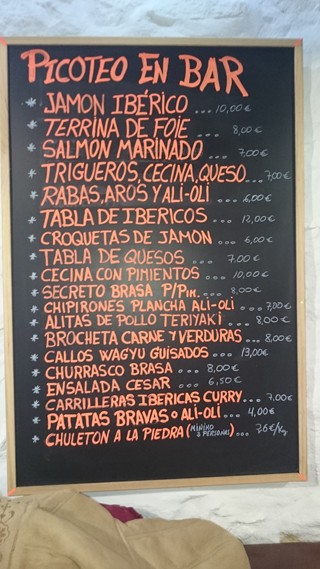 PICOTEO EN BAR
* JAMON IBÉRICO ... 10,00€
* TERRINA DE FOIE ... 8,00€
* SALMON MARINADO ... 7,00€
* TRIGUEROS, CECINA, QUESO... 7,00€
* RABAS, AROS Y ALI-OLI ... 6,00€
* TABLA DE IBERICOS ... 12,00€
* CROQUETAS DE JAMON ... 6,00€
* TABLA DE QUESOS ... 7,00€
* CECINA CON PIMIENTOS ... 10,00€
* SECRETO BRASA P/PIM. ... 8,00€
* CHIPIRONES PLANCHA ALI-OLI ... 7,00€
* ALITAS DE POLLO TERIYAKI ... 8,00€
* BROCHETA CARNE Y VERDURAS ... 8,00€
* CALLOS WAGYU GUISADOS ... 13,00€
* CHURRASCO BRASA ... 8,00€
* ENSALADA CESAR ... 6,50€
* CARRILLERAS IBERICAS CURRY... 7,00€
* PATATAS BRAVAS o ALI-OLI... 4,00€
* CHULETON A LA PIEDRA (MINIMO PERSONAS) ... €/Kg